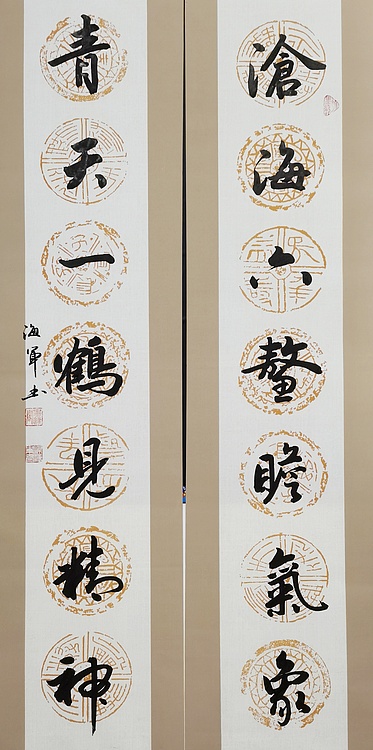 滄海六鳌瞻氣象
青天一鶴見精神
海軍书